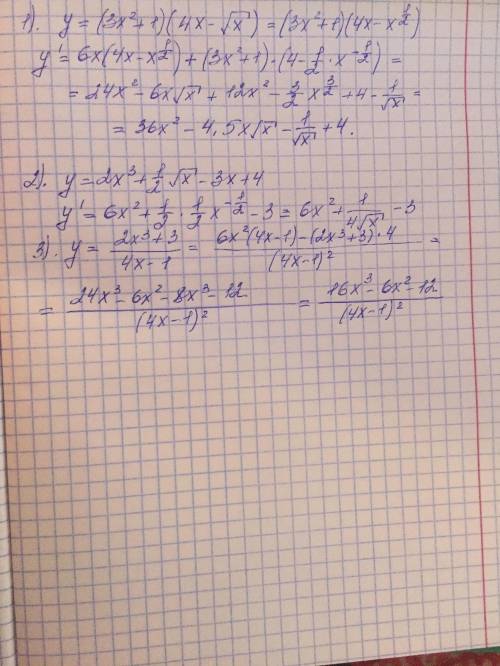 1). y = (3x²+1)(4x - √x) = (3x²+1)(4x - x^{1/2})
y' = 6x(4x - x^{1/2}) + (3x²+1)·(4 - 1/2 · x^{-1/2}) =
= 24x² - 6x√x + 12x² - 3/2 x^{3/2} + 4 - 1/√x =
= 36x² - 4,5x√x - 1/√x + 4.
2). y = 2x³ + 1/2 √x - 3x + 4
y' = 6x² + 1/2 · 1/2 x^{-1/2} - 3 = 6x² + 1/(4√x) - 3
3). y = (2x³+3)/(4x-1) = (6x²(4x-1) - (2x³+3)·4)/(4x-1)² =
= (24x³ - 6x² - 8x³ - 12)/(4x-1)² = (16x³ - 6x² - 12)/(4x-1)²